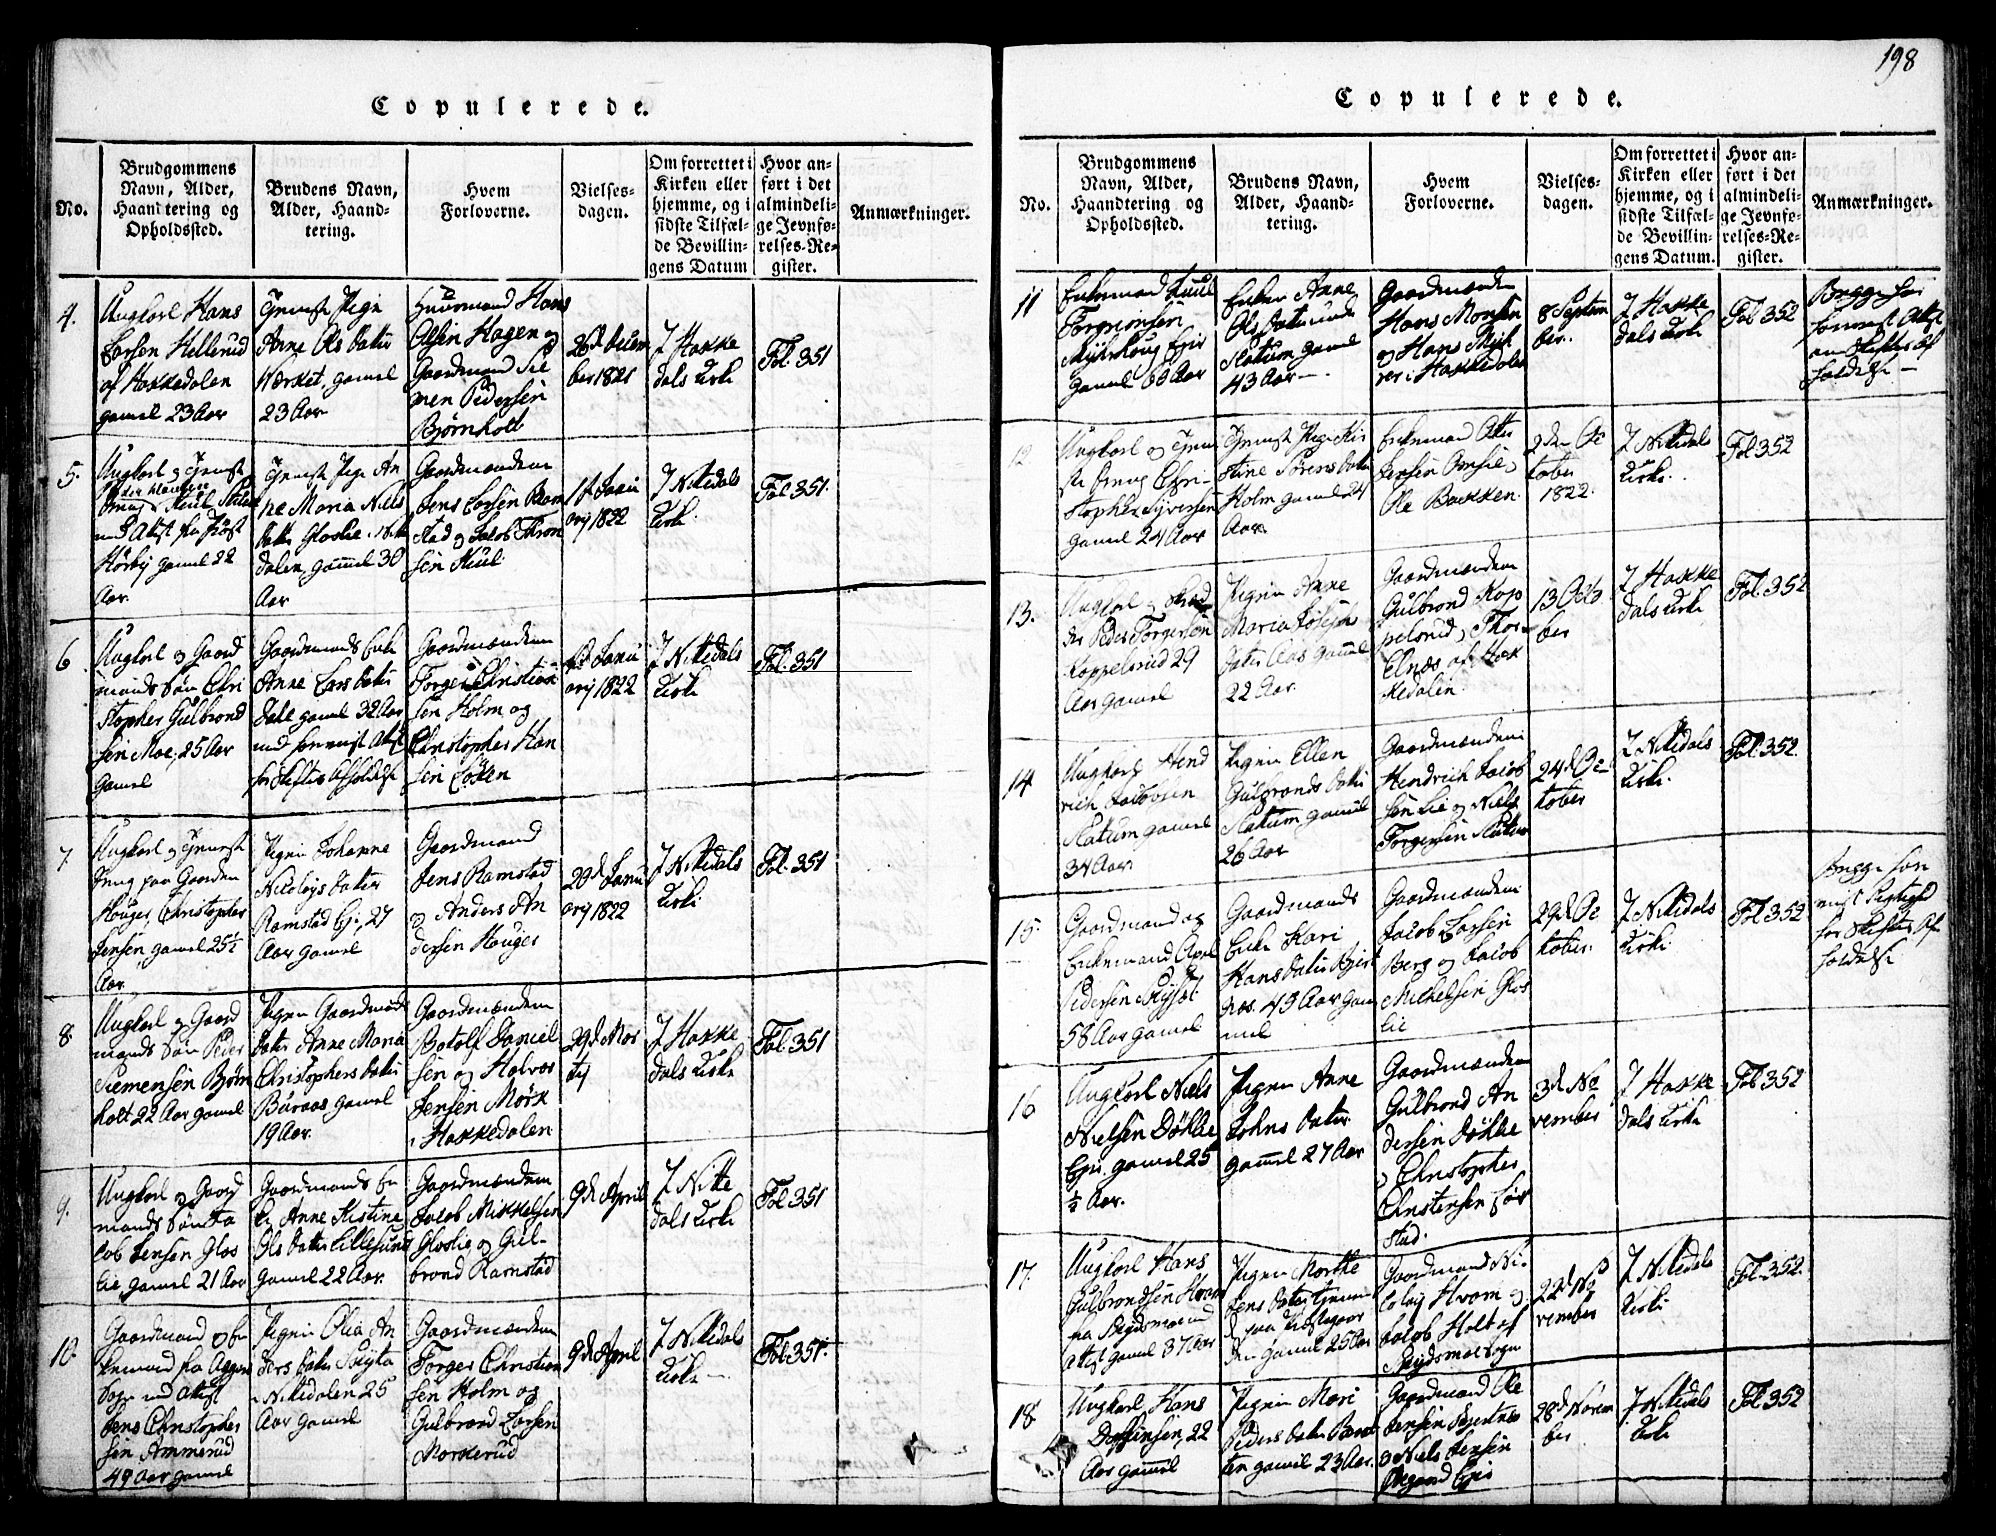 198
Copulerede.
No.
Brudgommens
Navn, Alder,
Haandtering og
Opholdssted.
Brudens Navn,
Alder, Haand-
tering.
Hvem
Forloverne.
Vielses-
dagen.
Om forrettet i
Kirken eller
hjemme, og i
sidste Tilfæl-
de Bevillin-
gens Datum
Hvor an-
ført i det
almindeli-
ge Jevnfø-
relses-Re-
gister.
Anmærkninger.
4.
Ungkarl Hans
Larsen Hellerud
af Hakkedalen
gamel 23 Aar
Anne Ols Datter
Værket, gamel
23 Aar
Huusmand Hans
Olsen Hagen og
Gaardmand Si
men Pedersen
Bjørnholt
26 Decem
ber 1821
I Hakke
dals Kirke
Fol. 351
5.
Ungkarl og
med Attest fra
gamel 22
Aar
Pige An
ne Maria Niels
Datter Gloslie i Nitte
dalen, gamel 30
Aar
Gaardmændene
Jens Larsen Ram
stad og Jacob
sen
1 Janu
arj 1822
I Nitedals
Kirke
Fol. 351.
6
Ungkarl og Gaard
mands Søn Chri
stopher Gulbrand
sen Moe, 25 Aar
gamel
Gaardmands Enke
Anne Lars Datter
gamel 32 Aar
med Attest
for Skiftes Afholdelse
Gaardmændene
Torger Christian
sen Holm og
Christopher Han
sen Løken
Janu
arj 1822
I Nitedals
Kirke
Fol. 351
7.
Ungkarl og
Dreng paa Gaarden
Houger, Christopher
Jensen, gamel 25½
Aar.
Pigen Johanne
Nicolays Datter
Ramstad Ej: 27
Aar gamel
Gaardmand
Jens Ramstad
og Anders An
dersen Houger
29d Janu
arj 1822
I Nitedals
Kirke
Fol. 351
8
Ungkarl og Gaard
mands Søn Peder
Siemensen Bjørn
holt 22 Aar gamel
Pigen Gaardmands
Datter Anne Maria
Christophers Datter
Buraas gamel
19 Aar.
Gaardmændene
Botolf Daniel
sen og Halvor
Jensen Mørk
i Hakkedalen
29d Mar
tij
I Hakke
dals Kirke
Fol. 351
9.
Ungkarl og Gaard
mands Søn Ja
cob Jensen Glos
lie, gamel 21 Aar
Gaardmands En
ke Anne Kistine
Ols Datter Lillesund
gamel 22 Aar.
Gaardmændene
Jacob Mikkelsen
Gloslie og Gul-
brand Ramstad
9d April
I Nitte
dals Kirke
Fol. 351
10.
Gaardmand og En
kemand fra Aggers
Sogn med Attest
Jens Christopher
sen Ammerud
49 Aar gamel
Pigen Olia An
ders Datter Skytta
i Nitedalen 25
Aar gamel
Gaardmændene
Torger Christian
sen Holm og
Gulbrand Larsen
Markerud
9d April
I Nitedals
Kirke
Fol 351.
Copulerede.
No.
Brudgommens
Navn, Alder,
Haandtering og
Opholdssted.
Brudens Navn,
Alder, Haand-
tering.
Hvem
Forloverne.
Vielses-
dagen.
Om forrettet i
Kirken eller
hjemme, og i
sidste Tilfæl-
de Bevillin-
gens Datum.
Hvor an-
ført i det
almindeli-
ge Jevnfø-
relses-Re-
gister.
Anmærkninger.
11
Enkemand
gamel Aar
Enken Anne
Ols Datter
Slatum gamel
43 Aar.
Gaardmændene
Hans Monsen
og Hans
i Hakkedalen
8 Septem
ber.
I Hakke
dals Kirke
Fol 352
Begge har
Attest
om Skiftes Af
holdelse
12
Ungkarl og
Dreng Chri-
stopher Syversen
gamel 24 Aar
Pige Kir
stine Sørens Datter
Holm gamel 24
Aar.
Enkemand
Jensen
Ole Bakken.
2den Oc
tober
1822.
I Nitedals
Kirke.
Fol 352
13.
Ungkarl og
Peder Torgersen
Koppelsrud 29
Aar gamel
Pigen Anne
Maria Josephs
Datter Aas gamel
22 Aar.
Gaardmændene
Gulbrand Kop
pelsrud, Thor-
Elnæs af Hak
kedalen
13 Octo
ber
I Hakke
dals Kirke
Fol. 352
14
Ungkarl Hend
rich Jacobsen
Slatum gamel
34 Aar.
Pigen Ellen
Gulbrands Datter
Slatum gamel
26 Aar
Gaardmændene
Hendrich Jacob
sen Lie og Niels
Torgersen Slatum
24d Oc
tober
I Nitedals
Kirke
Fol: 352.
15.
Gaardmand og
Enkemand
Pedersen
58 Aar gamel
Gaardmands
Enke Kari
Hans Datter
49 Aar gam
mel
Gaardmændene
Jacob Larsen
Berg og Jacob
Michelsen Glos
lie
29d Oc
tober.
I Nitedals
Kirke
Fol 352
Begge har
for Skiftes Af
holdelse
16
Ungkarl Niels
Nielsen Døhlie
Ejer. gamel 25
½ Aar.
Pigen Anne
Johns Datter
gamel 27 Aar
Gaardmændene
Gulbrand An
dersen Døhlie
og Christopher
Christensen
stad.
3d No
vember
I Hakke
dals Kirke
Fol 352
17.
Ungkarl Hans
Gulbrandsen
fra
Attest gamel 37 Aar
Pigen Marthe
Jens Datter
paa Præstegaar
den gamel 25 Aar
Gaardmand Ni-
colay Hvam og
Jacob Holt af
Sogn
22d No
vember
I Nitedals
Kirke
Fol. 352.
18.
Ungkarl Hans
22
Aar gamel
Pigen Mari
Peders Datter
gamel 23 Aar.
Gaardmand Ole
Jensen
og Niels Jensen
28d Novem
ber
I Nitedals
Kirke
Fol 352